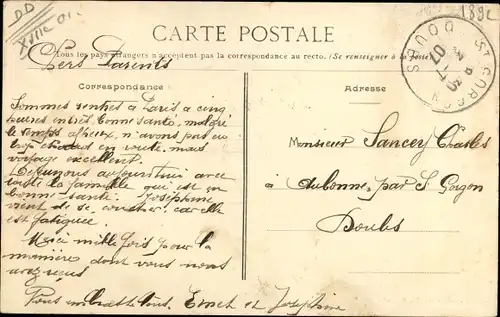 DD
XVIIe
189c
CARTE POSTALE
Tous les pays étrangers n'acceptent pas la correspondance au recto. (Se renseigner à la poste)
Chers Parents
Correspondance
Adresse
Sommes rentrés à Paris à cinq
heures en bonne santé, malgré
le temps affreux, n'avons pas eu
trop chaud en route, mais
voyage excellent.
Déjeunons aujourd'hui avec
toute la famille qui est en
bonne santé. Joséphine
vient de se coucher, car elle
est fatiguée
Merci mille fois pour la
manière dont vous nous
avez reçus
Vous embrasse tous, Ernest et Joséphine
Monsieur Sancey Charles
à Aubonne, par St Gorgon
Doubs
ST GORGON
DOUBS
07